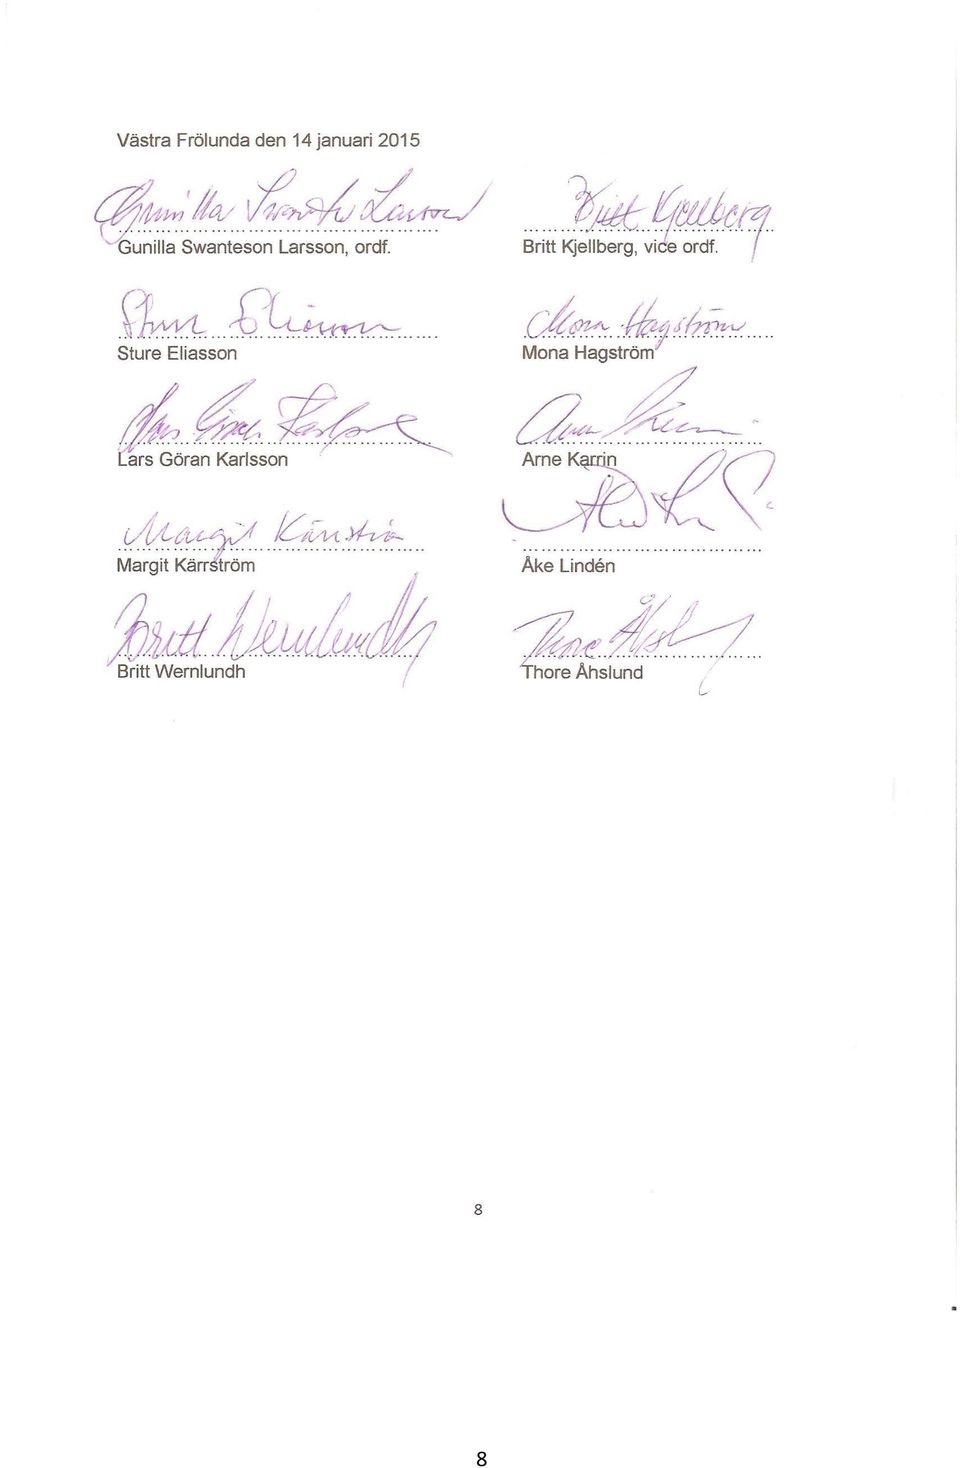 Västra Frölunda den 14 januari 2015
Gunilla Swanteson Larsson Britt Kjellberg
Gunilla Swanteson Larsson, ordf. Britt Kjellberg, vice ordf.
Sture Eliasson Mona Hagström
Sture Eliasson Mona Hagström
Lars Göran Karlsson
Lars Göran Karlsson Arne Karrin
Margit Kärrström
Margit Kärrström Åke Lindén
Britt Wernlundh Thore
Britt Wernlundh Thore Åhslund
8
8